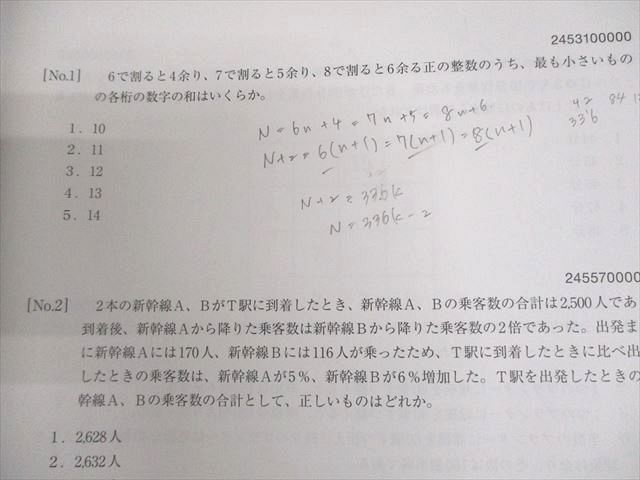 2453100000
[No.1] 6で割ると4余り、7で割ると5余り、8で割ると6余る正の整数のうち、最も小さいもの
の各桁の数字の和はいくらか。
1. 10
2. 11
3. 12
4. 13
5. 14
N = 6n+4 = 7n+5 = 8n+6
N+2 = 6(n+1) = 7(n+1) = 8(n+1)
42 84
336
N+2 = 335k
N = 336k-2
245570000
[No.2] 2本の新幹線A、BがT駅に到着したとき、新幹線A、Bの乗客数の合計は2,500人であ
到着後、新幹線Aから降りた乗客数は新幹線Bから降りた乗客数の2倍であった。出発ま
に新幹線Aには170人、新幹線Bには116人が乗ったため、T駅に到着したときに比べ出
したときの乗客数は、新幹線Aが5%、新幹線Bが6%増加した。T駅を出発したときの
幹線A、Bの乗客数の合計として、正しいものはどれか。
1. 2,628人
2. 2,632人